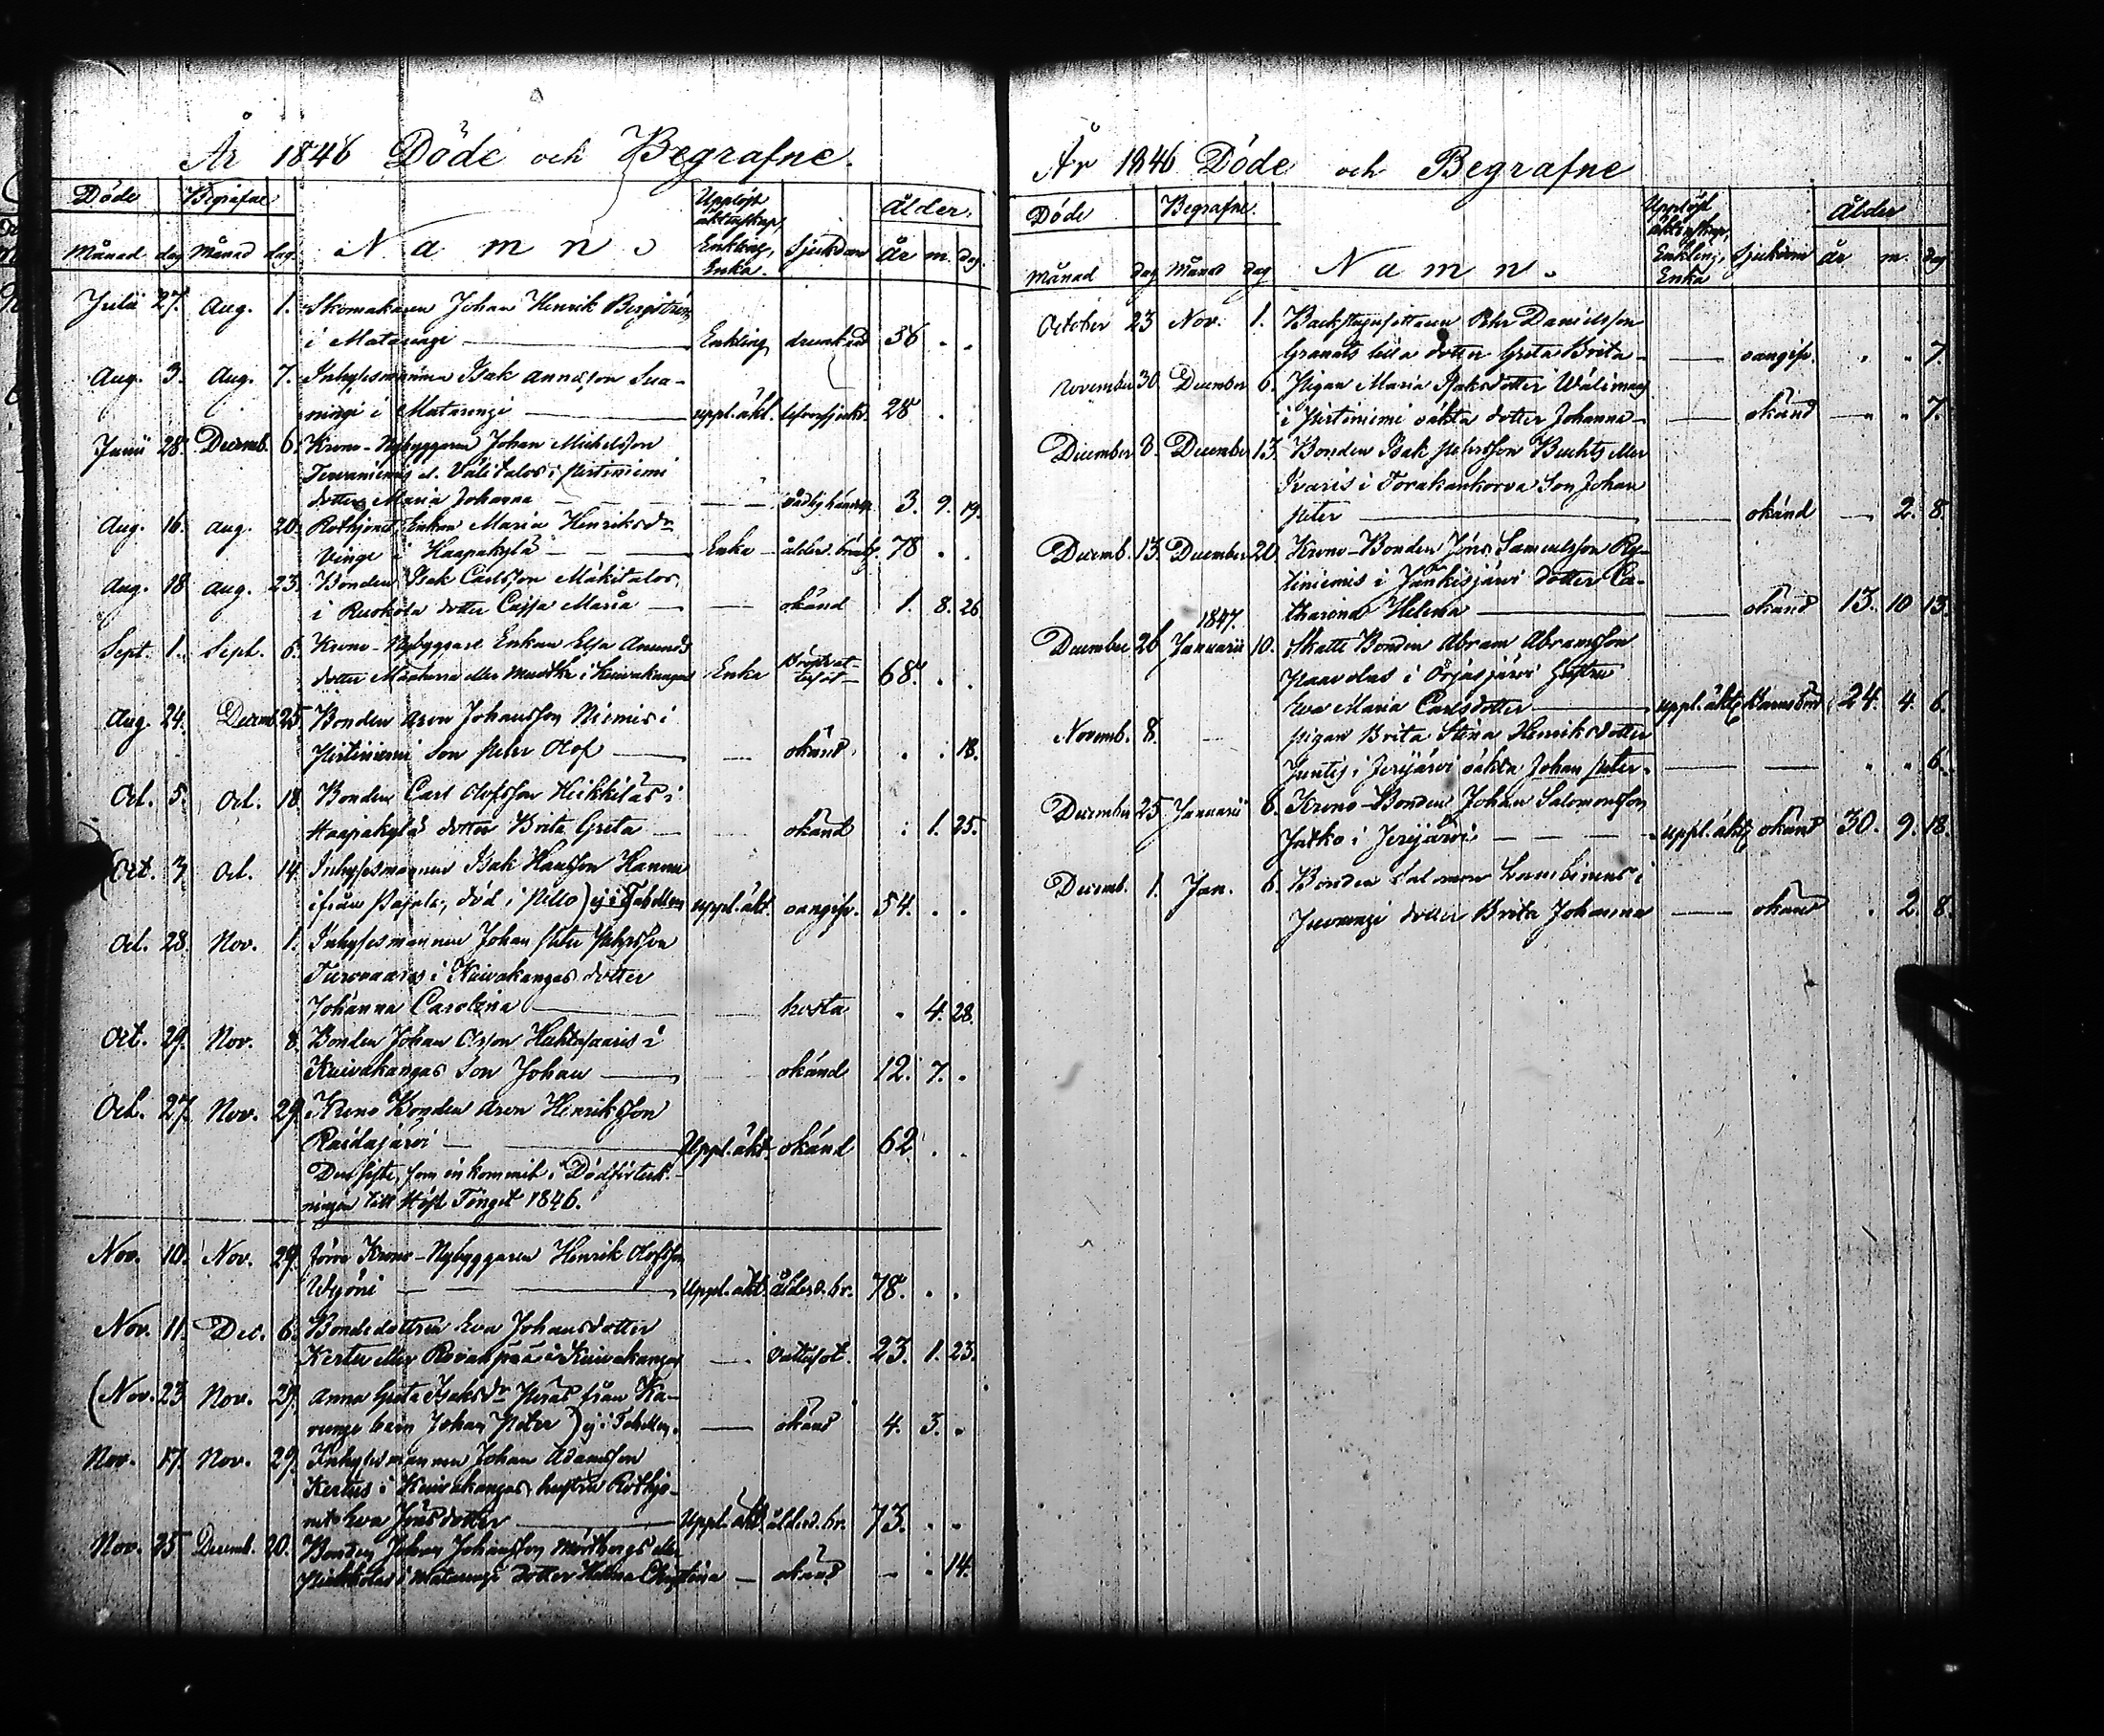 År 1846 Döde och Begrafne.
Döde Begrafne Namn. Upplöst äktenskap, Enkling, Enka. Sjukdom Ålder.
Månad dag Månad dag År m. dag.
Julii 27. Aug. 1. Skomakaren Johan Henrik Bergström
i Matarengi Enkling drunknad 36 . .
Aug. 3. Aug. 7. Inhysesmannen Isak
i Matarengi uppl. äkt. 28 .
Junii 28. Decemb. 6. Krono-Nybyggaren Johan Michelsson
i Pirtiniemi
dotter Maria Johanna 3. 9. 19.
Aug. 16. Aug. 20. Rothjonet Enkan Maria Henriksdr
Vinge i Haapakylä Enka 78 . .
Aug. 18 Aug. 23. Bonden Isak Carlsson Mäkitalos
i Ruokola dotter Cajsa Maria okänd 1. 8. 26.
Sept. 1. Sept. 6. Krono-Nybyggare Enkan Elsa Amunds
dotter eller i Kuivakangas Enka 68. . .
Aug. 24. Decemb. 25. Bonden Aron Johansson Niemis i
Pirtiniemi Son Peter Olof okänd . . 18.
Oct. 5. Oct. 18. Bonden Carl Olofsson Heikkiläs i
Haapakylä dotter Brita Greta okänd . 1. 25.
(Oct. 3. Oct. 14. Inhysesmannen Isak Hansson Hannu
ifrån Pajala, död i Pello) ej i Tabellen uppl. äkt. oangifv. 54. . .
Oct. 28. Nov. 1. Inhysesmannen Johan Peter Pehrsson
i Kuivakangas dotter
Johanna Carolina hosta . 4. 28.
Oct. 29. Nov. 8. Bonden Johan Olsson Huhtasaaris i
Kuivakangas Son Johan okänd 12. 7. .
Oct. 27. Nov. 29. Krono Bonden Aron Henriksson
Raidajärvi Uppl. äkt. okänd 62 . .
Den siste, som inkommit i Dödförteck-
ningen till Höst Tinget 1846.
Nov. 10. Nov. 29. förre Krono-Nybyggaren Henrik Olofsson
Uppl. äkt. ålderd. br. 78. . .
Nov. 11. Dec. 6. Bondedottren Eva Johansdotter
Kertu eller Rovanpää i Kuivakangas vattusot. 23. 1. 23.
(Nov. 23 Nov. 29. Anna Greta Isaksdr från Ka-
runge barn Johan Peter) ej i Tabellen. okänd 4. 3. .
Nov. 17. Nov. 29. Inhysesmannen Johan Adamsson
Kertus i Kuivakangas hustru Rothjo-
net Eva Jönsdotter Uppl. äkt. ålderd. br. 73. . .
Nov. 25 Decemb. 20. Bonden Johan Johansson eller
i Matarengi dotter Helena Christina okänd . . 14.
År 1846 Döde och Begrafne
Döde Begrafne. Namn. Upplöst äktenskap, Enkling, Enka Sjukdom Ålder
Månad dag Månad dag år m. dag
October 23 Nov. 1. Backstugusittaren Pehr Danielsson
Granats lilla dotter Greta Brita oangifv. . . 7.
November 30. December 6. Pigan Maria Isaksdotter Wälimaa
i Pirtiniemi oäkta dotter Johanna okänd . . 7.
December 8. December 13. Bonden Isak Pehrsson Buchts eller
Ivaris i Torakankorva Son Johan
Peter okänd 2. 8.
Decemb. 13. December 20. Krono-Bonden Jöns Samuelsson
i Jänkisjärvi dotter Ca-
tharina Helena okänd 13. 10 13.
1847.
December 26 Januarii 10. Skatte Bonden Abram Abramsson
Paavolas i Orjasjärvi hustru
Eva Maria Carlsdotter uppl. äkt. barnsbörd 24. 4. 6.
Novemb. 8. Pigan Brita Stina Henriksdotter
Juntis i Jerijärvi oäkta Johan Peter . . 6.
December 25 Januarii 6. Krono-Bonden Johan Salomonsson
Jatko i Jerijärvi uppl. äkt. okänd 30. 9. 18.
Decemb. 1. Jan. 6. Bonden Salomon i
Juoxengi dotter Brita Johanna okänd . 2. 8.